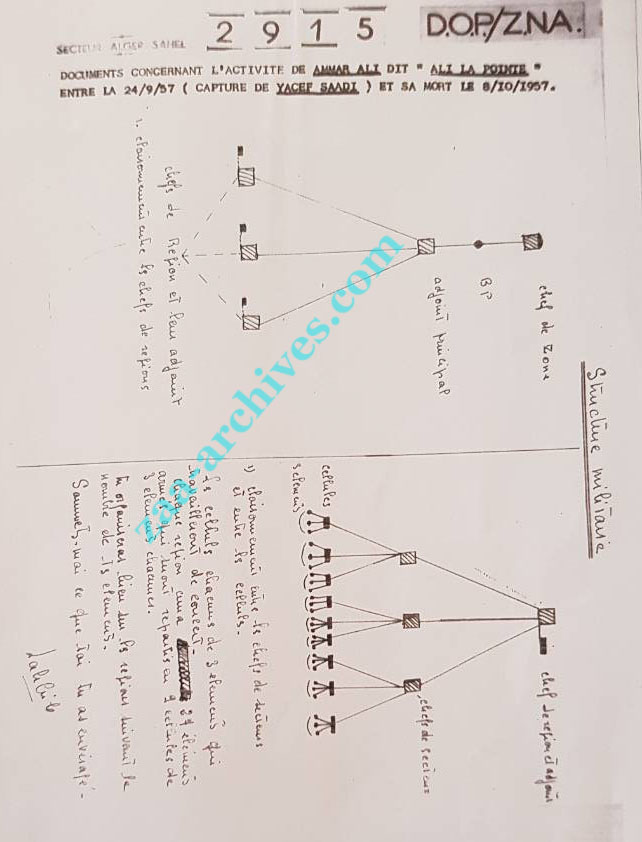 2915 D.O.P./Z.N.A.
SECTEUR ALGER SAHEL
DOCUMENTS CONCERNANT L'ACTIVITE DE AMMAR ALI DIT " ALI LA POINTE "
ENTRE LA 24/9/57 ( CAPTURE DE YACEF SAADI ) ET SA MORT LE 8/10/1957.
Structure militaire
chef de Zone
BP
adjoint principal
chefs de Region et leur adjoint
1. cloisonnement entre les chefs de regions
chef de region et adjoint
chefs de secteur
cellules
3 elements
1) cloisonnement entre les chefs de secteurs
et entre les cellules.
Les cellules chacunes de 3 elements qui
travailleront de concert
chaque region aura elements
armés qui seront repartis en 9 cellules de
3 elements chacunes.
tu organiseras bien sur les regions suivant le
nombre de tes elements.
Soumets-moi ce que tu as envisagé.
-archives.com